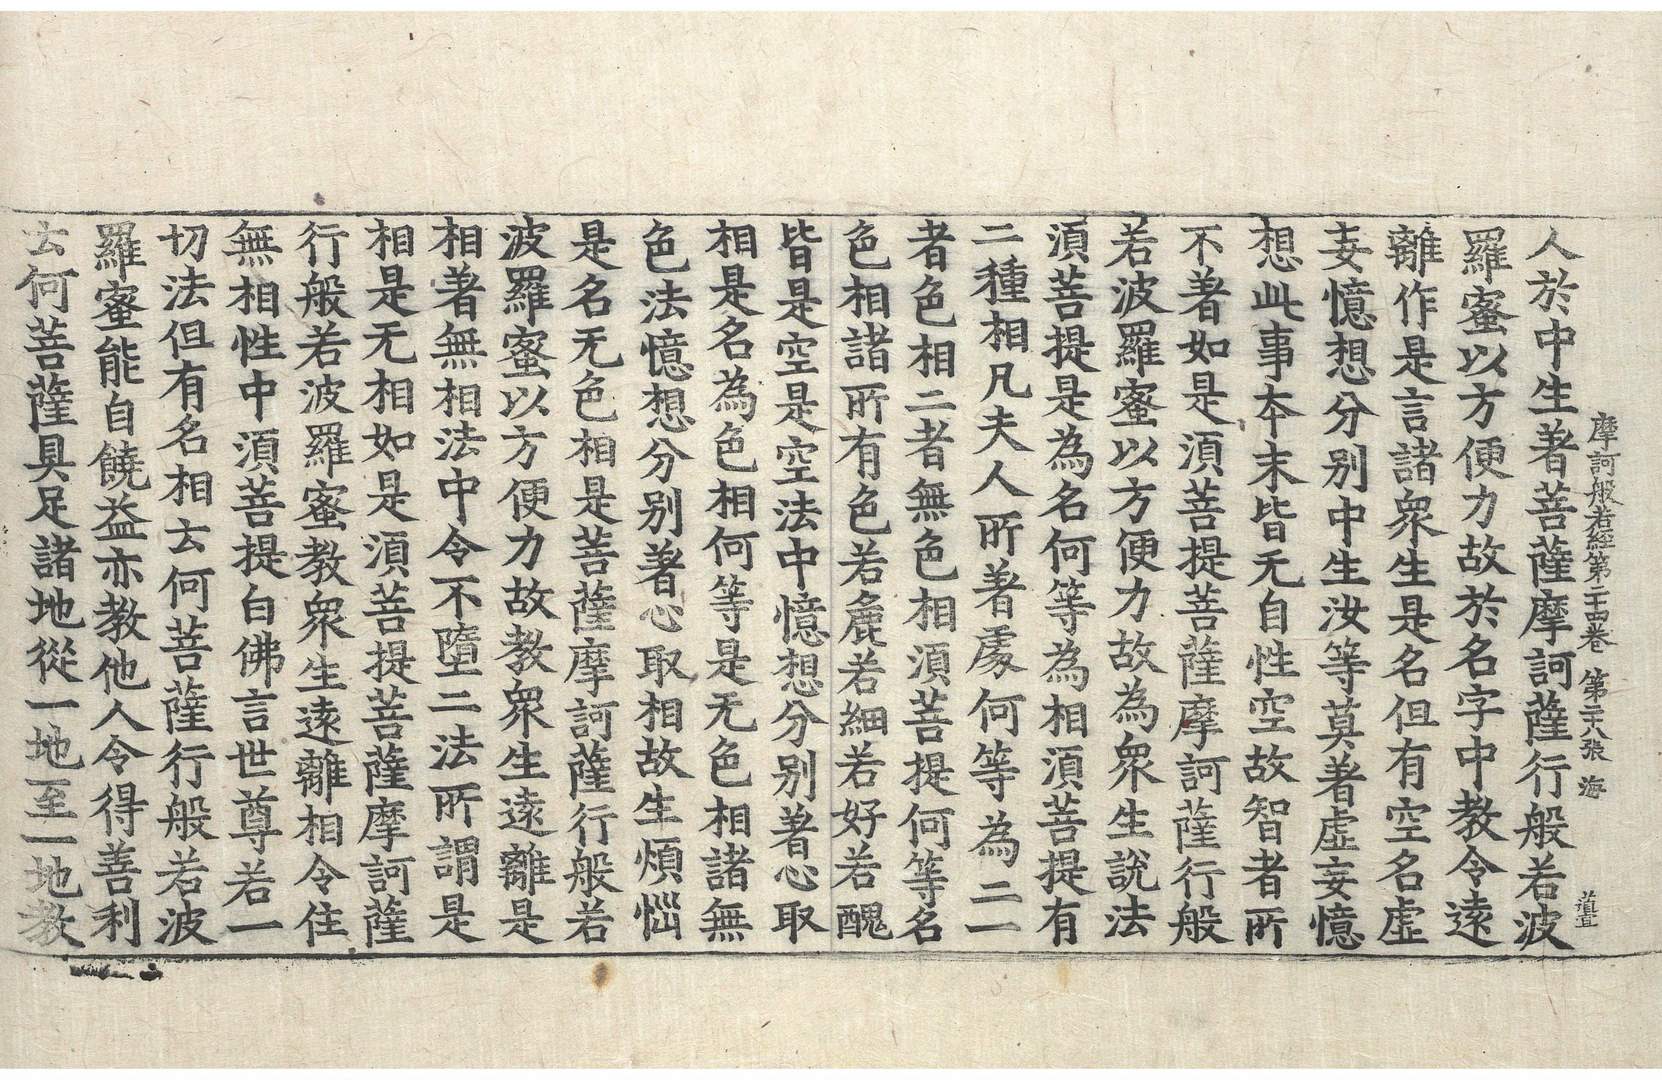 摩訶般若經第二十四卷 第二十八張 海
人於中生著菩薩摩訶薩行般若波
羅蜜以方便力故於名字中教令遠
離作是言諸衆生是名但有空名虛
妄憶想分别中生汝等莫著虛妄憶
想此事本末皆无自性空故智者所
不著如是須菩提菩薩摩訶薩行般
若波羅蜜以方便力故為衆生說法
須菩提是為名何等為相須菩提有
二種相凡夫人所著處何等為二一
者色相二者無色相須菩提何等名
色相諸所有色若麁若細若好若醜
皆是空是空法中憶想分别著心取
相是名為色相何等是无色相諸無
色法憶想分别著心取相故生煩惱
是名无色相是菩薩摩訶薩行般若
波羅蜜以方便力故教衆生遠離是
相著無相法中令不墮二法所謂是
相是无相如是須菩提菩薩摩訶薩
行般若波羅蜜教衆生遠離相令住
無相性中須菩提白佛言世尊若一
切法但有名相云何菩薩行般若波
羅蜜能自饒益亦教他人令得善利
云何菩薩具足諸地從一地至一地教